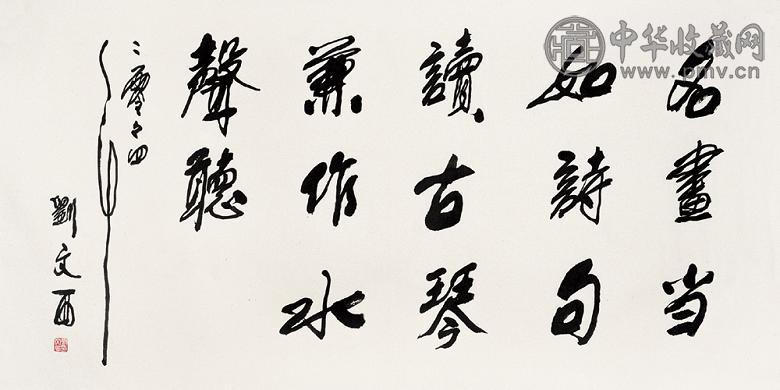 名畫当
如詩句
讀古琴
兼作水
聲聽
二零々四年
劉文西
中华收藏网
www.pmv.cn